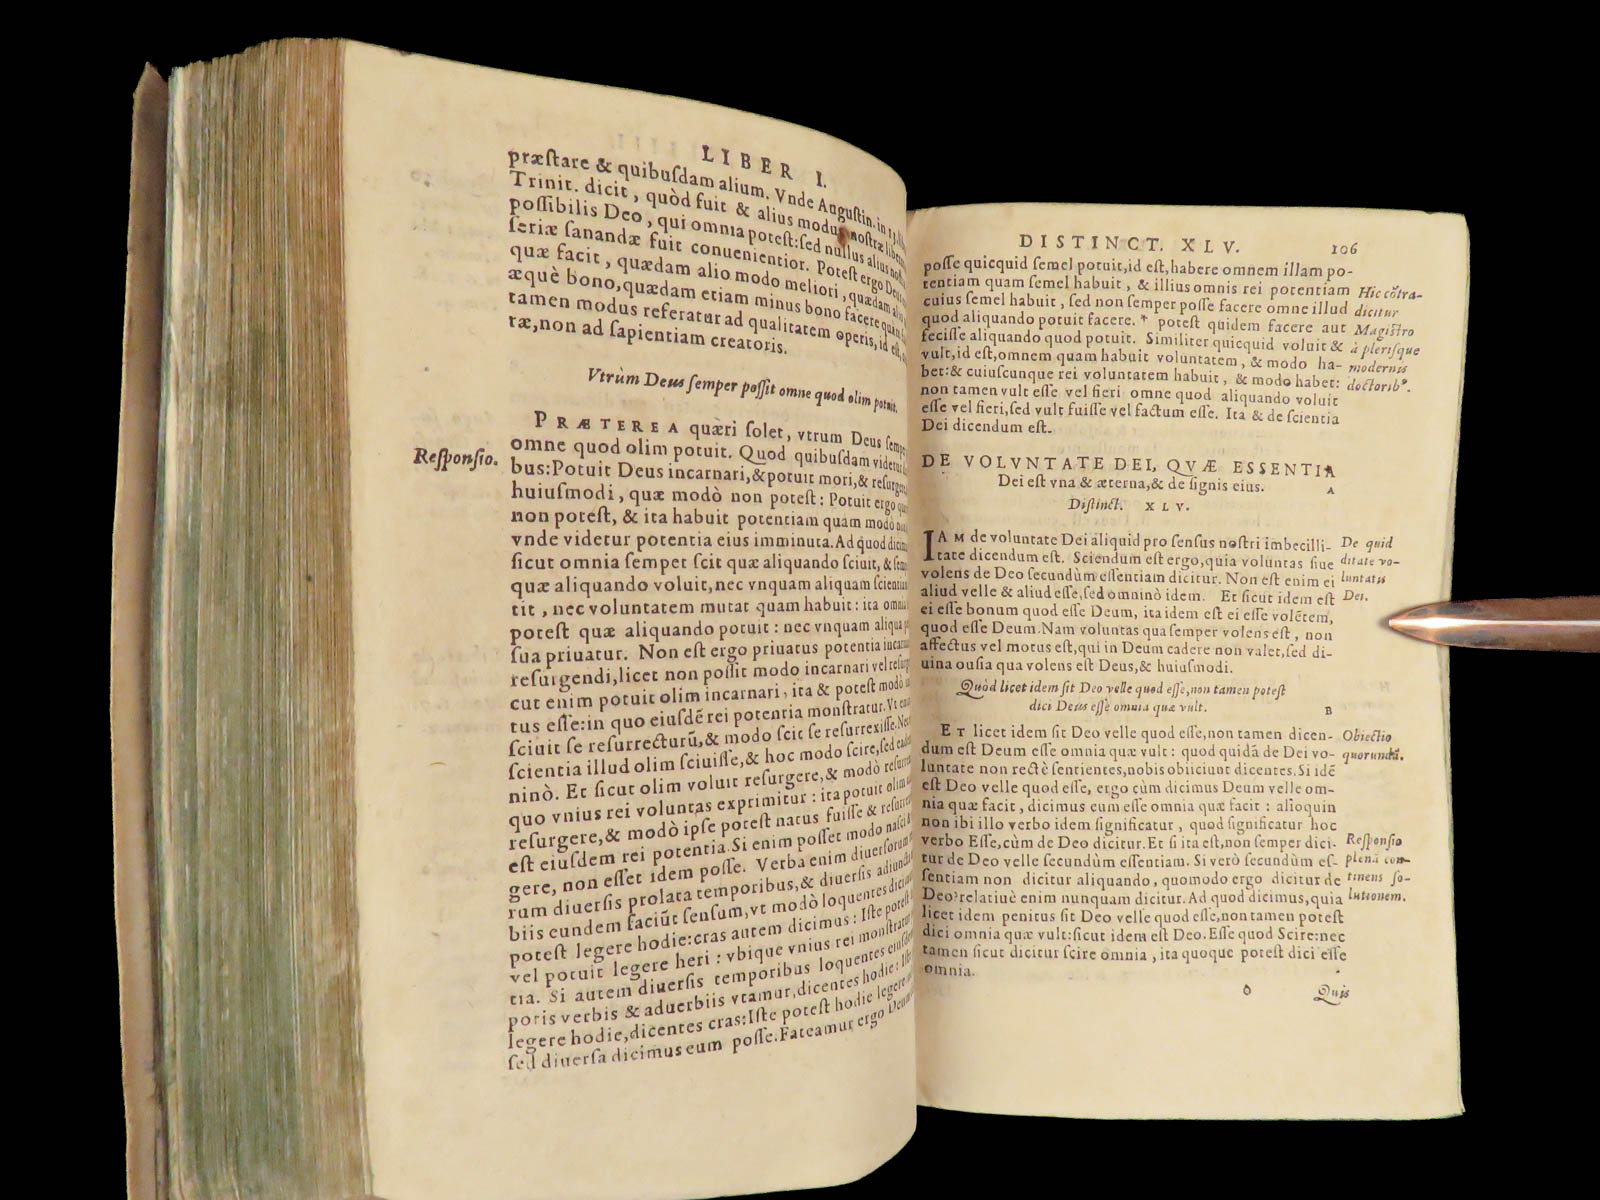 LIBER I.
præſtare & quibuſdam alium. Vnde Auguſtin. in 13. lib.
Trinit. dicit, quòd fuit & alius modus noſtræ libera
poſſibilis Deo, qui omnia poteſt: ſed nullus alius noſ
ſeriæ ſanandæ fuit conuenientior. Poteſt ergo Deus
quæ facit, quædam alio modo meliori, quædam alio
æquè bono, quædam etiam minus bono facere quàm
tamen modus referatur ad qualitatem operis, id eſt,
ræ, non ad ſapientiam creatoris.
Vtrùm Deus ſemper poſſit omne quod olim potuit.
PRÆTEREA quæri ſolet, vtrum Deus ſemper
Reſponſio.
omne quod olim potuit. Quod quibuſdam videtur
bus: Potuit Deus incarnari, & potuit mori, & reſurgere
huiuſmodi, quæ modò non poteſt: Potuit ergo quæ
non poteſt, & ita habuit potentiam quam modò non
vnde videtur potentia eius imminuta. Ad quod dicim
ſicut omnia ſemper ſcit quæ aliquando ſciuit, & ſem
quæ aliquando voluit, nec vnquam aliquam ſcientiam
tit, nec voluntatem mutat quam habuit: ita omnia
poteſt quæ aliquando potuit: nec vnquam aliqua p
ſua priuatur. Non eſt ergo priuatus potentia incar
reſurgendi, licet non poſſit modo incarnari vel reſurg
cut enim potuit olim incarnari, ita & poteſt modò
tus eſſe: in quo eiuſdē rei potentia monſtratur. Vt eni
ſciuit ſe reſurrecturū, & modo ſcit ſe reſurrexiſſe. Nec
ſcientia illud olim ſciuiſſe, & hoc modo ſcire, ſed eadem
ninò. Et ſicut olim voluit reſurgere, & modò reſurre
quo vnius rei voluntas exprimitur: ita potuit olim
reſurgere, & modò ipſe poteſt natus fuiſſe & reſurre
eſt eiuſdem rei potentia. Si enim poſſet modo naſci &
gere, non eſſet idem poſſe. Verba enim diuerſorum
rum diuerſis prolata temporibus, & diuerſis adiunctis
biis eundem faciūt ſenſum, vt modò loquentes dicim
poteſt legere hodie: cras autem dicimus: Iſte poteſt
vel potuit legere heri: vbique vnius rei monſtratur
tia. Si autem diuerſis temporibus loquentes eiuſdem
poris verbis & aduerbiis vtamur, dicentes hodie: Iſte
legere hodie, dicentes cras: Iſte poteſt hodie legere
ſed diuerſa dicimus eum poſſe. Fateamur ergo Deum
DISTINCT. XLV. 106
poſſe quicquid ſemel potuit, id eſt, habere omnem illam po-
tentiam quam ſemel habuit, & illius omnis rei potentiam
cuius ſemel habuit, ſed non ſemper poſſe facere omne illud
quod aliquando potuit facere. * poteſt quidem facere aut
feciſſe aliquando quod potuit. Similiter quicquid voluit &
vult, id eſt, omnem quam habuit voluntatem, & modo ha-
bet: & cuiuſcunque rei voluntatem habuit, & modo habet:
non tamen vult eſſe vel fieri omne quod aliquando voluit
eſſe vel fieri, ſed vult fuiſſe vel factum eſſe. Ita & de ſcientia
Dei dicendum eſt.
Hic cōtra-
dicitur
Magiſtro
à pleriſque
modernis
doctorib⁹.
DE VOLVNTATE DEI, QVÆ ESSENTIA
Dei eſt vna & æterna, & de ſignis eius. A
Diſtinct. XLV.
IAM de voluntate Dei aliquid pro ſenſus noſtri imbecilli-
tate dicendum eſt. Sciendum eſt ergo, quia voluntas ſiue
volens de Deo ſecundùm eſſentiam dicitur. Non eſt enim ei
aliud velle & aliud eſſe, ſed omninò idem. Et ſicut idem eſt
ei eſſe bonum quod eſſe Deum, ita idem eſt ei eſſe volētem,
quod eſſe Deum. Nam voluntas qua ſemper volens eſt, non
affectus vel motus eſt, qui in Deum cadere non valet, ſed di-
uina ouſia qua volens eſt Deus, & huiuſmodi.
De quid
ditate vo-
luntatis
Dei.
Quòd licet idem ſit Deo velle quod eſſe, non tamen poteſt
dici Deus eſſe omnia quæ vult. B
ET licet idem ſit Deo velle quod eſſe, non tamen dicen-
dum eſt Deum eſſe omnia quæ vult: quod quidā de Dei vo-
luntate non rectè ſentientes, nobis obiiciunt dicentes. Si idē
eſt Deo velle quod eſſe, ergo cùm dicimus Deum velle om-
nia quæ facit, dicimus eum eſſe omnia quæ facit: alioquin
non ibi illo verbo idem ſignificatur, quod ſignificatur hoc
verbo Eſſe, cùm de Deo dicitur. Et ſi ita eſt, non ſemper dici-
tur de Deo velle ſecundùm eſſentiam. Si verò ſecundùm eſ-
ſentiam non dicitur aliquando, quomodo ergo dicitur de
Deo? relatiuè enim nunquam dicitur. Ad quod dicimus, quia
licet idem penitus ſit Deo velle quod eſſe, non tamen poteſt
dici omnia quæ vult: ſicut idem eſt Deo. Eſſe quod Scire: nec
tamen ſicut dicitur ſcire omnia, ita quoque poteſt dici eſſe
omnia.
Obiectio
quorundā.
Reſponſio
plenā con-
tinens ſo-
lutionem.
o Quis